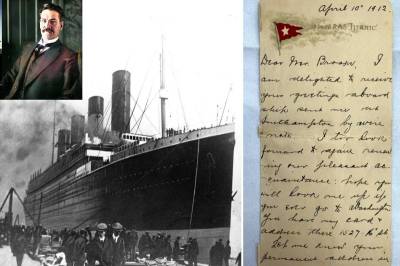 April 10th 1912.
R.M.S. TITANIC.
Dear Mr. Brooks, I
am delighted to receive
your greetings aboard
ship sent me at
Southampton by wire
note. I too look
forward to again renew
ing our pleasant ac
quaintance: hope you
will look me up if
you ever go to Washington
You have my card &
address there 1527- 16th St
Let me know your
permanent address in